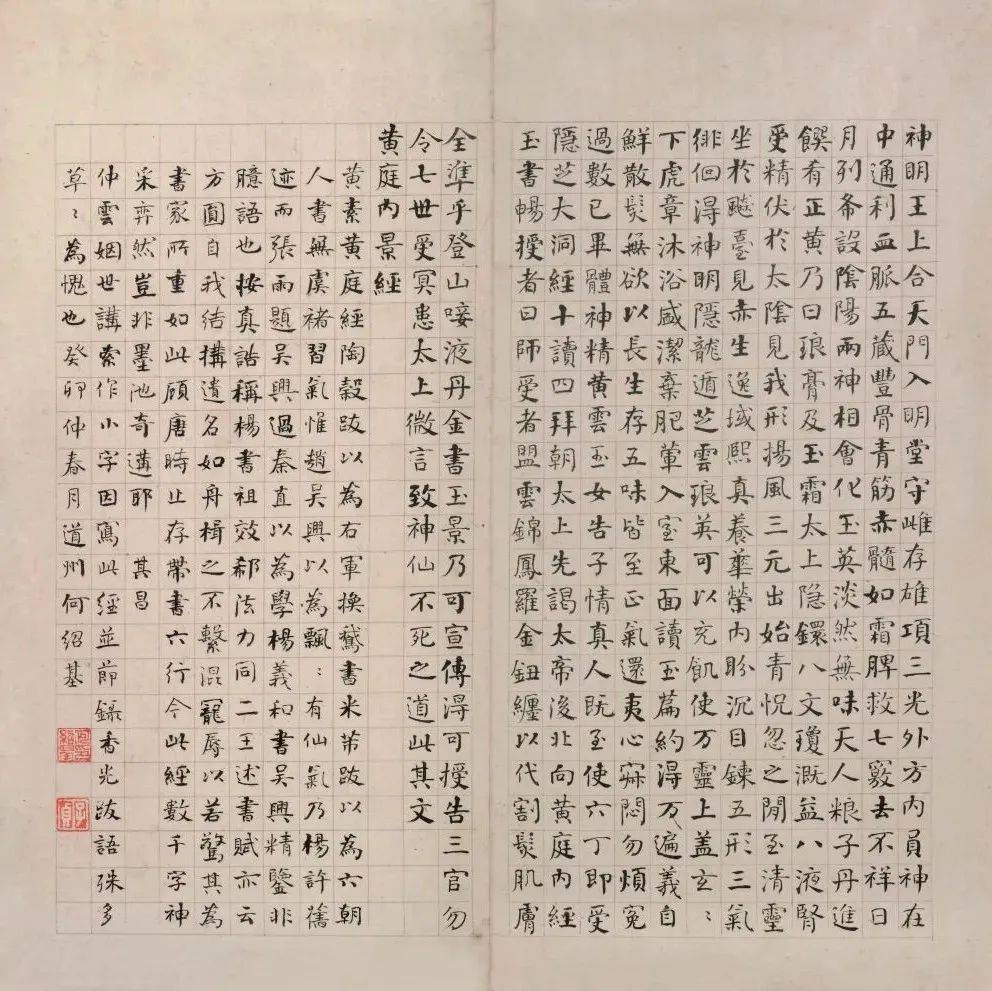 神明王上合天門入明堂守雌存雄項三光外方内員神在
中通利血脈五藏豐骨青筋赤髓如霜脾救七竅去不祥日
月列布設陰陽兩神相會化玉英淡然無味天人粮子丹進
饌肴正黄乃曰琅膏及玉霜太上隐鐶八文瓊溉益八液腎
受精伏於太陰見我形揚風三元出始青怳忽之間至清靈
坐於飈臺見赤生逸域熙真養華榮内盼沉目鍊五形三氣
徘徊得神明隱龍遁芝雲琅英可以充飢使万靈上盖玄〻
下虎章沐浴盛潔棄肥葷入室東面讀玉篇約得万遍義自
鮮散髮無欲以長生存五味皆至正氣還夷心寂悶勿煩冤
過數已畢體神精黄雲玉女告子情真人既至使六丁即受
隱芝大洞經十讀四拜朝太上先謁太帝後北向黄庭内經
玉書暢授者曰師受者盟雲錦鳳羅金鈕纏以代割髮肌膚
全準乎登山唼液丹金書玉景乃可宣傳得可授告三官勿
令七世受冥患太上微言致神仙不死之道此其文
黄庭内景經
黄素黄庭經陶穀跋以為右軍換鵝書米芾跋以為六朝
人書無虞褚習氣惟趙吳興以為飄〻有仙氣乃楊許舊
迹而張雨題吳興過秦直以為學楊義和書吳興精鑒非
臆語也按真誥稱楊書祖效郗法力同二王述書賦亦云
方圓自我結搆遺名如舟楫之不繫混寵辱以若驚其為
書家所重如此顧唐時止存帶書六行今此經數千字神
采弈然豈非墨池奇遘耶 其昌
仲雲姻世講索作小字因寫此經並節錄香光跋語殊多
草〻為愧也癸卯仲春月道州何紹基
何紹基
子貞